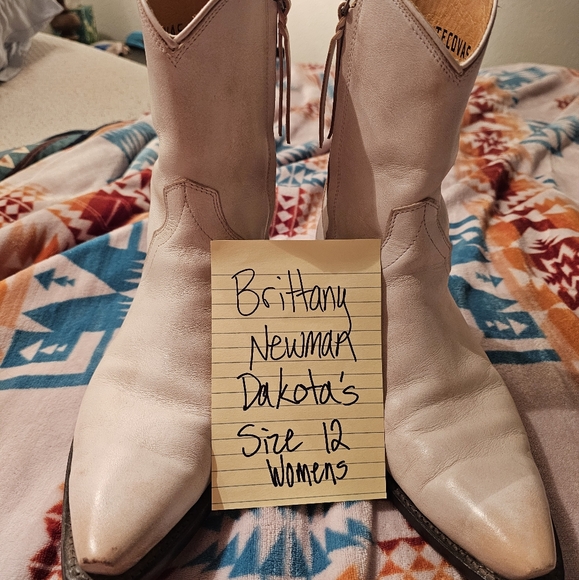 TECOVAS
Brittany
Newman
Dakota's
Size 12
Womens